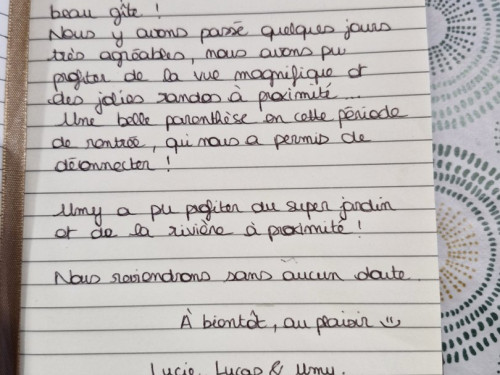 beau gîte !
Nous y avons passé quelques jours
très agréables, nous avons pu
profiter de la vue magnifique et
des jolies randos à proximité...
Une belle parenthèse en cette période
de rentrée, qui nous a permis de
déconnecter !
Umy a pu profiter du super jardin
et de la rivière à proximité !
Nous reviendrons sans aucun doute.
À bientôt, au plaisir
Lucie, Lucas & Umy.